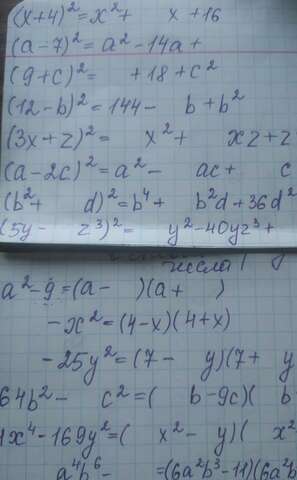 (x+4)²=x²+   x+16
(a-7)²=a²-14a+
(9+c)²=   +18+c²
(12-b)²=144-   b+b²
(3x+z)²=   x²+   xz+z
(a-2c)²=a²-   ac+   c
(b²+   d)²=b⁴+   b²d+36d²
(5y-   z³)²=   y²-40yz³+
числа
a²-9=(a-   )(a+   )
-x²=(4-x)(4+x)
-25y²=(7-   y)(7+   y
64b²-   c²=(   b-9c)(   b
4x⁴-169y²=(   x²-   y)(   x²
a⁴b⁶-   =(6a²b³-11)(6a²b